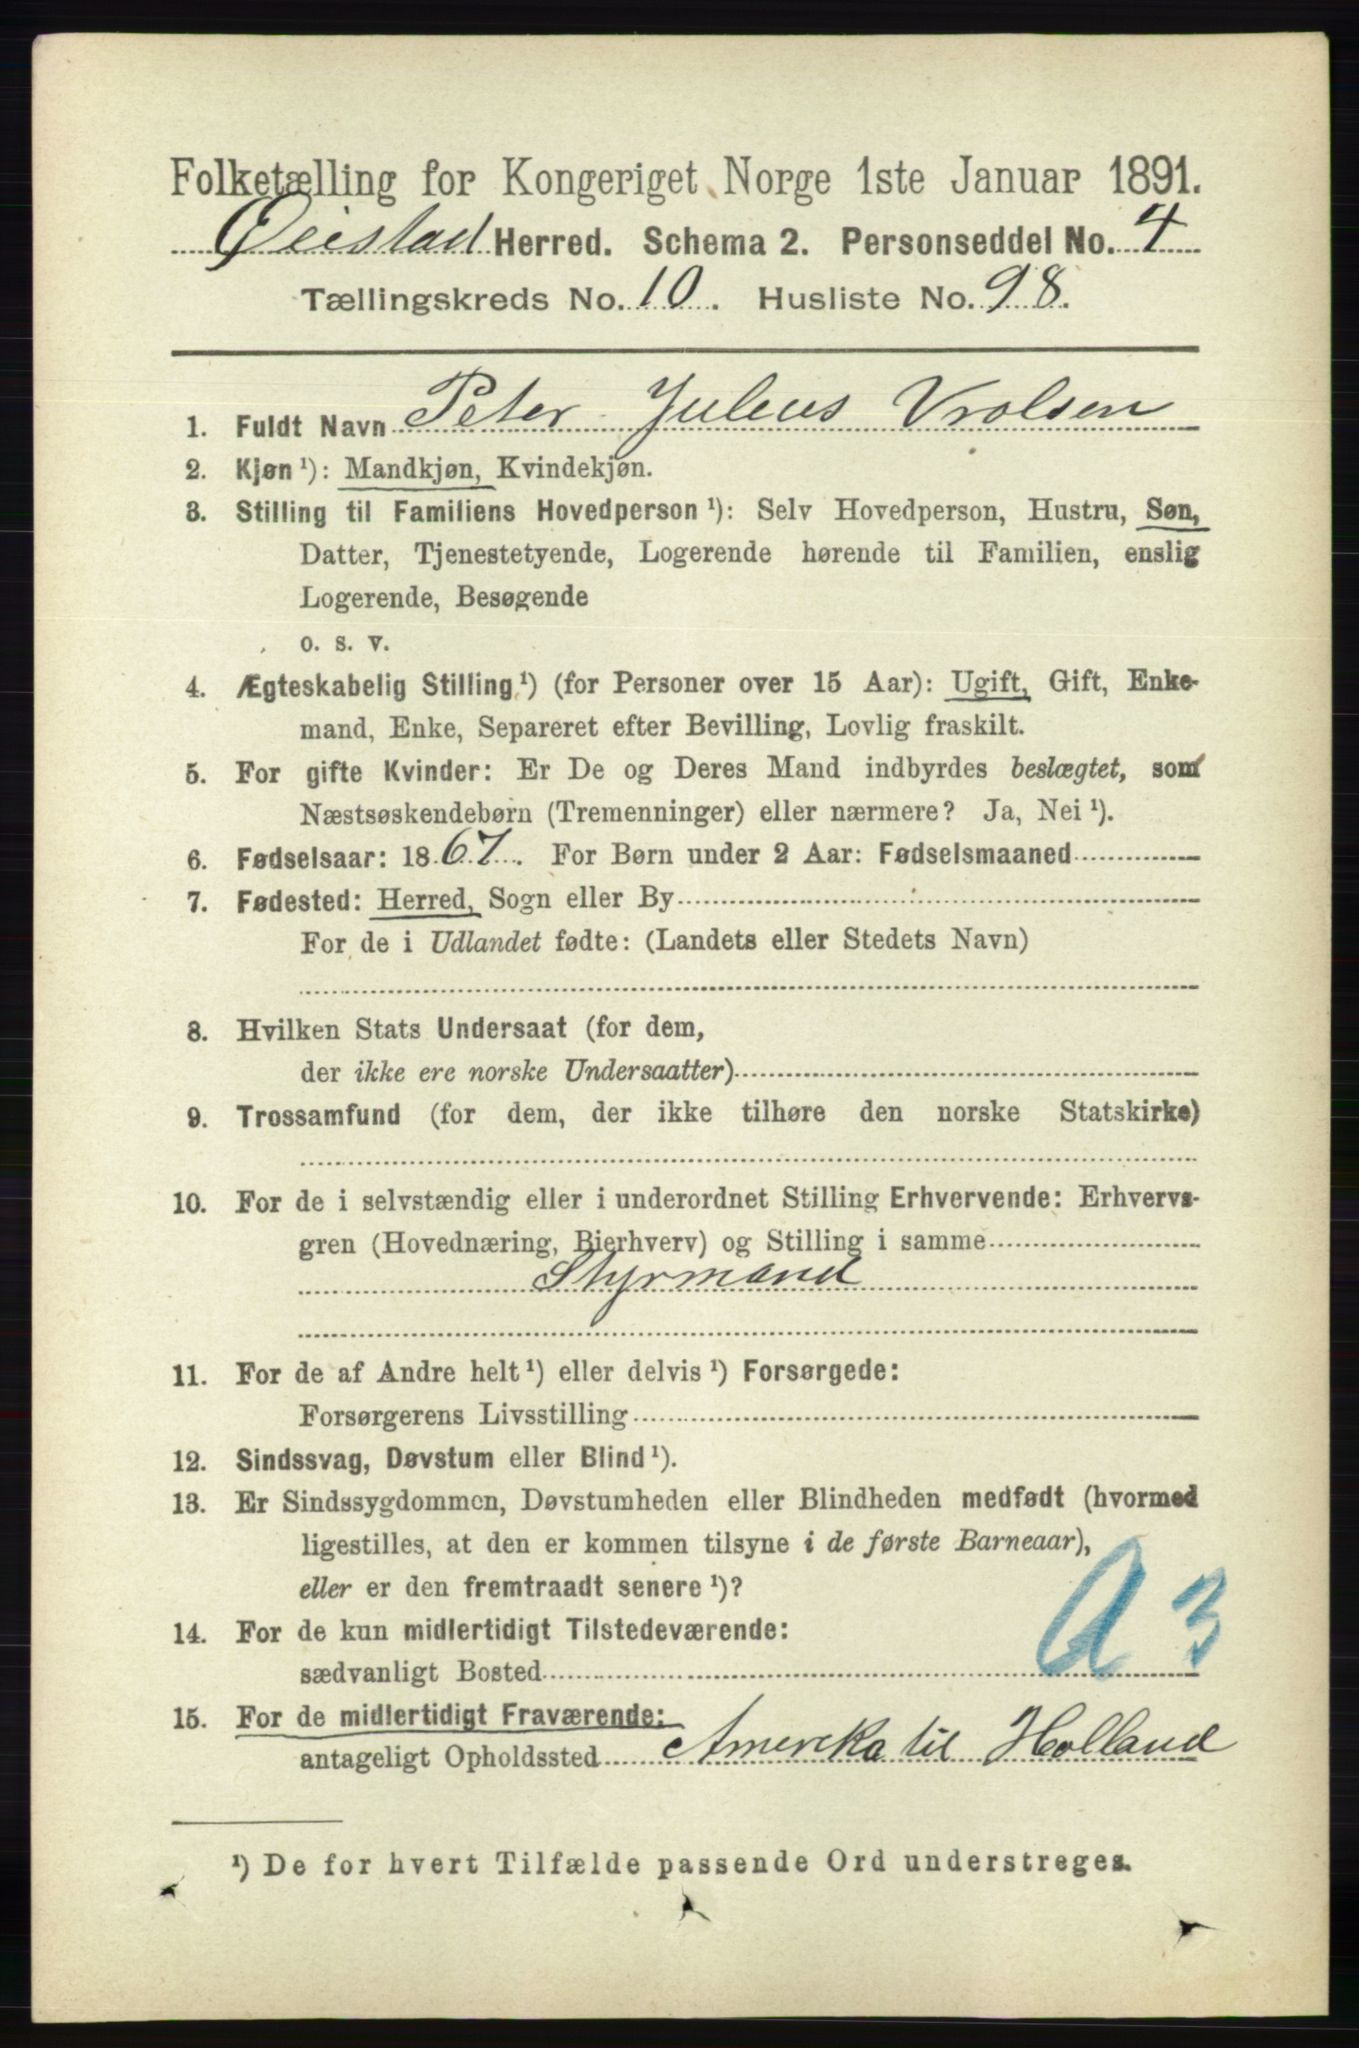 Folketælling for Kongeriget Norge 1ste Januar 1891.
Øeistad Herred. Schema 2. Personseddel No. 4
Tællingskreds No. 10. Husliste No. 98.
1. Fuldt Navn Peter Julius Vrolsen
2. Kjøn ¹): Mandkjøn, Kvindekjøn.
3. Stilling til Familiens Hovedperson ¹): Selv Hovedperson, Hustru, Søn,
Datter, Tjenestetyende, Logerende hørende til Familien, enslig
Logerende, Besøgende
o. s. v.
4. Ægteskabelig Stilling ¹) (for Personer over 15 Aar): Ugift, Gift, Enke-
mand, Enke, Separeret efter Bevilling, Lovlig fraskilt.
5. For gifte Kvinder: Er De og Deres Mand indbyrdes beslægtet, som
Næstsøskendebørn (Tremenninger) eller nærmere? Ja, Nei ¹).
6. Fødselsaar: 1867. For Børn under 2 Aar: Fødselsmaaned
7. Fødested: Herred, Sogn eller By
For de i Udlandet fødte: (Landets eller Stedets Navn)
8. Hvilken Stats Undersaat (for dem,
der ikke ere norske Undersaatter)
9. Trossamfund (for dem, der ikke tilhøre den norske Statskirke)
10. For de i selvstændig eller i underordnet Stilling Erhvervende: Erhvervs-
gren (Hovednæring, Bierhverv) og Stilling i samme
Styrmand
11. For de af Andre helt ¹) eller delvis ¹) Forsørgede:
Forsørgerens Livsstilling
12. Sindssvag, Døvstum eller Blind ¹).
13. Er Sindssygdommen, Døvstumheden eller Blindheden medfødt (hvormed
ligestilles, at den er kommen tilsyne i de første Barneaar),
eller er den fremtraadt senere ¹)?
14. For de kun midlertidigt Tilstedeværende:
sædvanligt Bosted
A 3
15. For de midlertidigt Fraværende:
antageligt Opholdssted Amerika til Holland
¹) De for hvert Tilfælde passende Ord understreges.